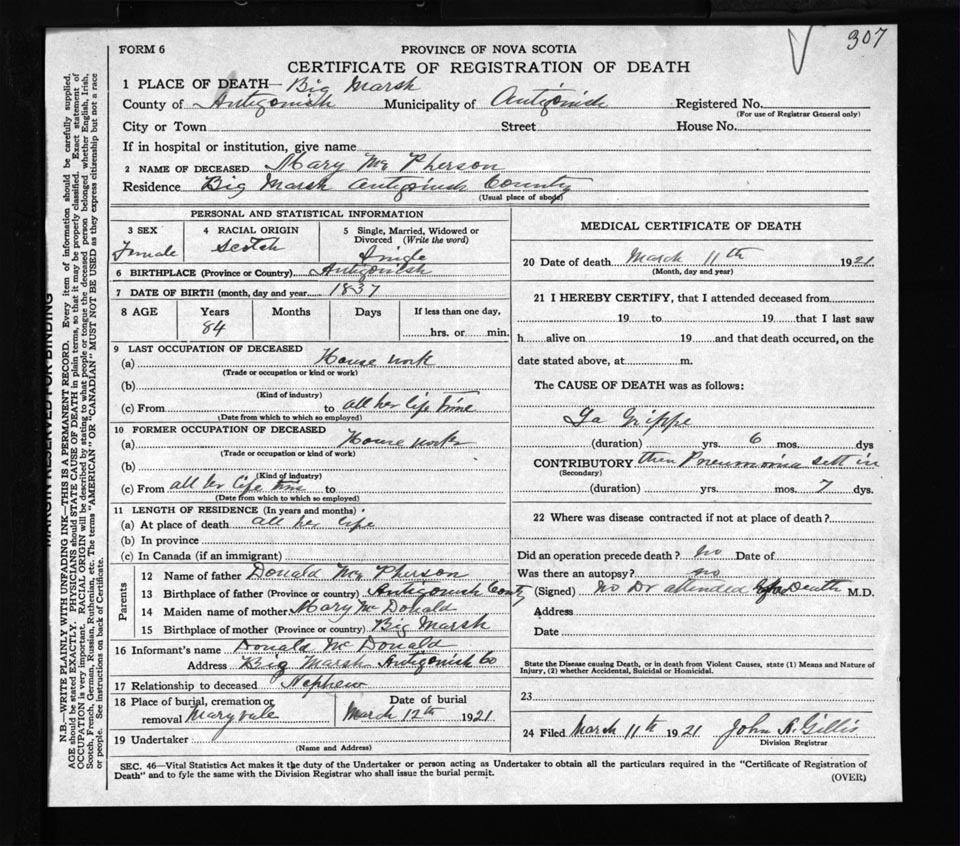 307
FORM 6
PROVINCE OF NOVA SCOTIA
CERTIFICATE OF REGISTRATION OF DEATH
1 PLACE OF DEATH— Big Marsh
County of Antigonish Municipality of Antigonish Registered No.
(For use of Registrar General only)
City or Town Street House No.
If in hospital or institution, give name
2 NAME OF DECEASED Mary Mc Pherson
Residence Big Marsh Antigonish County
(Usual place of abode)
PERSONAL AND STATISTICAL INFORMATION
3 SEX Female
4 RACIAL ORIGIN Scotch
5 Single, Married, Widowed or Divorced (Write the word) Single
6 BIRTHPLACE (Province or Country) Antigonish
7 DATE OF BIRTH (month, day and year) 1837
8 AGE Years Months Days If less than one day,
84 hrs. or min.
9 LAST OCCUPATION OF DECEASED
(a) House work
(Trade or occupation or kind or work)
(b)
(Kind of industry)
(c) From to all her life time
(Date from which to which so employed)
10 FORMER OCCUPATION OF DECEASED
(a) House work
(Trade or occupation or kind of work)
(b)
(Kind of industry)
(c) From all her life time to
(Date from which to which so employed)
11 LENGTH OF RESIDENCE (In years and months)
(a) At place of death all her life
(b) In province
(c) In Canada (if an immigrant)
Parents
12 Name of father Donald Mc Pherson
13 Birthplace of father (Province or country) Antigonish County
14 Maiden name of mother Mary Mc Donald
15 Birthplace of mother (Province or country) Big Marsh
16 Informant's name Donald Mc Donald
Address Big Marsh Antigonish Co
17 Relationship to deceased Nephew
18 Place of burial, cremation or removal Maryvale
Date of burial March 12th 1921
19 Undertaker
(Name and Address)
MEDICAL CERTIFICATE OF DEATH
20 Date of death March 11th 1921
(Month, day and year)
21 I HEREBY CERTIFY, that I attended deceased from
19 to 19 that I last saw
h alive on 19 and that death occurred, on the
date stated above, at m.
The CAUSE OF DEATH was as follows:
La Grippe
(duration) yrs. 6 mos. dys
CONTRIBUTORY then Pneumonia sett in
(Secondary)
(duration) yrs. mos. 7 dys.
22 Where was disease contracted if not at place of death?
Did an operation precede death? no Date of
Was there an autopsy? no
(Signed) No Dr attended before Death M.D.
Address
Date
State the Disease causing Death, or in death from Violent Causes, state (1) Means and Nature of
Injury, (2) whether Accidental, Suicidal or Homicidal.
23
24 Filed March 11th 1921 John A. Gillis
Division Registrar
SEC. 46—Vital Statistics Act makes it the duty of the Undertaker or person acting as Undertaker to obtain all the particulars required in the "Certificate of Registration of
Death" and to fyle the same with the Division Registrar who shall issue the burial permit.
(OVER)
MARGIN RESERVED FOR BINDING
N.B.—WRITE PLAINLY WITH UNFADING INK—THIS IS A PERMANENT RECORD. Every item of information should be carefully supplied.
AGE should be stated EXACTLY. PHYSICIANS should STATE CAUSE OF DEATH in plain terms, so that it may be properly classified. Exact statement of
OCCUPATION is very important. RACIAL ORIGIN will be described by stating to what people or tongue the deceased person belonged whether English, Irish,
Scotch, French, German, Russian, Ruthenian, etc. The terms "AMERICAN" OR "CANADIAN" MUST NOT BE USED as they express citizenship but not a race
or people. See instructions on back of Certificate.